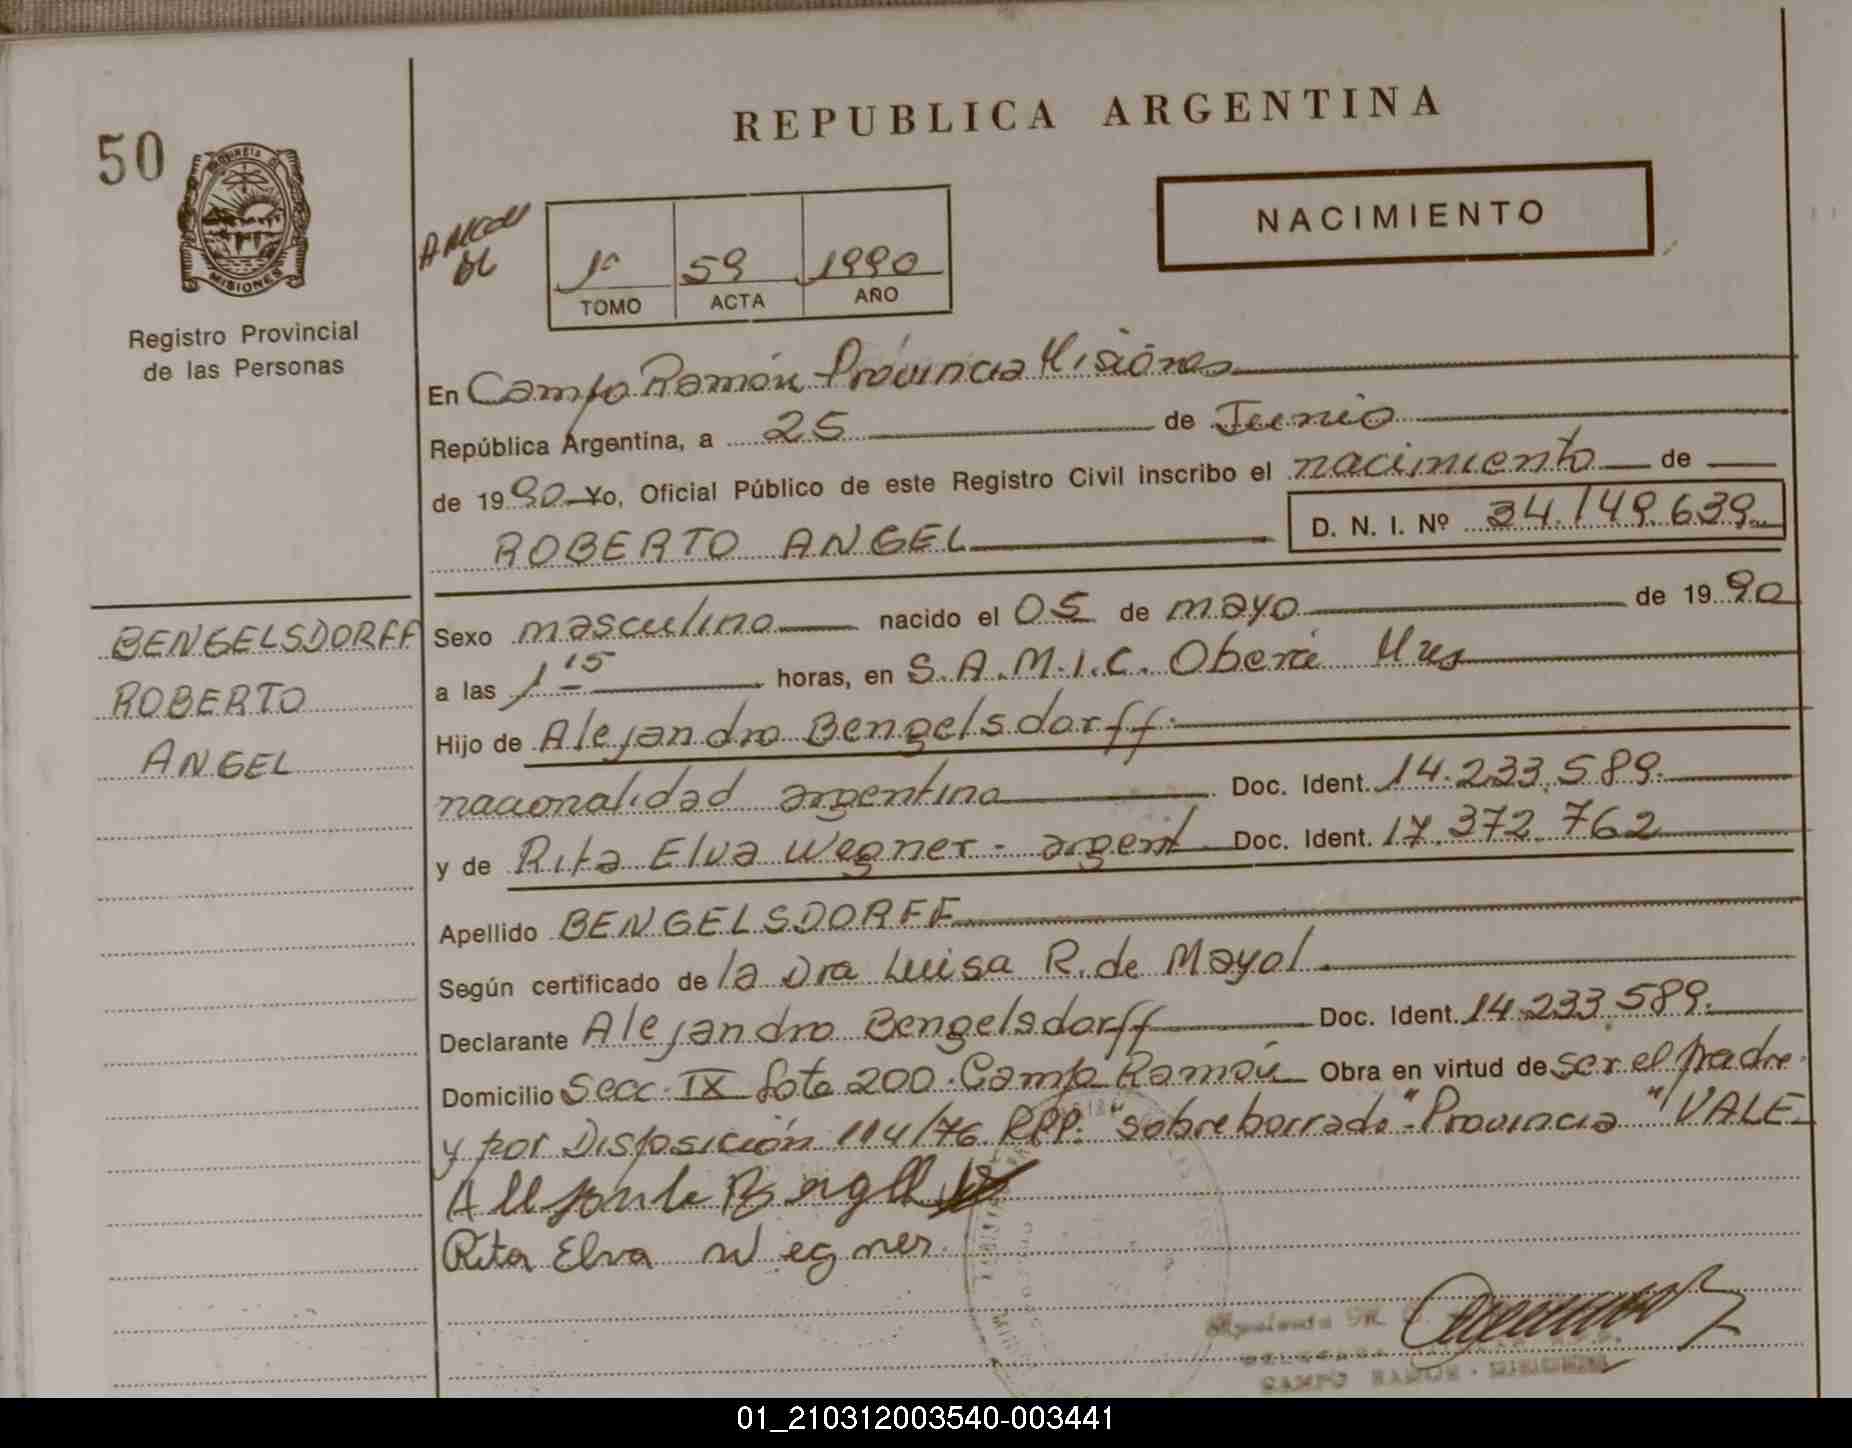 50
REPUBLICA ARGENTINA
NACIMIENTO
PROVINCIA DE
MISIONES
Registro Provincial
de las Personas
1º 59 1990
TOMO ACTA AÑO
En Campo Ramón Provincia Misiones
República Argentina, a 25 de Junio
de 1990 Yo, Oficial Público de este Registro Civil inscribo el nacimiento de
ROBERTO ANGEL D. N. I. Nº 34.149.639
BENGELSDORFF
ROBERTO
ANGEL
Sexo masculino nacido el 05 de mayo de 1990
a las 1 15 horas, en S.A.M.I.C. Oberá Mnes
Hijo de Alejandro Bengelsdorff
nacionalidad argentina Doc. Ident. 14.233.589.
y de Rita Elva Wegner - argent Doc. Ident. 17.372.762
Apellido BENGELSDORFF
Según certificado de la Dra Luisa R. de Mayol
Declarante Alejandro Bengelsdorff Doc. Ident. 14.233.589.
Domicilio Secc. IX Lote 200. Campo Ramón Obra en virtud de ser el padre
y por Disposición 114/76 RPP. "sobreborrado" - Provincia" VALE
Rita Elva Wegner.
CAMPO RAMON - MISIONES
01_210312003540-003441